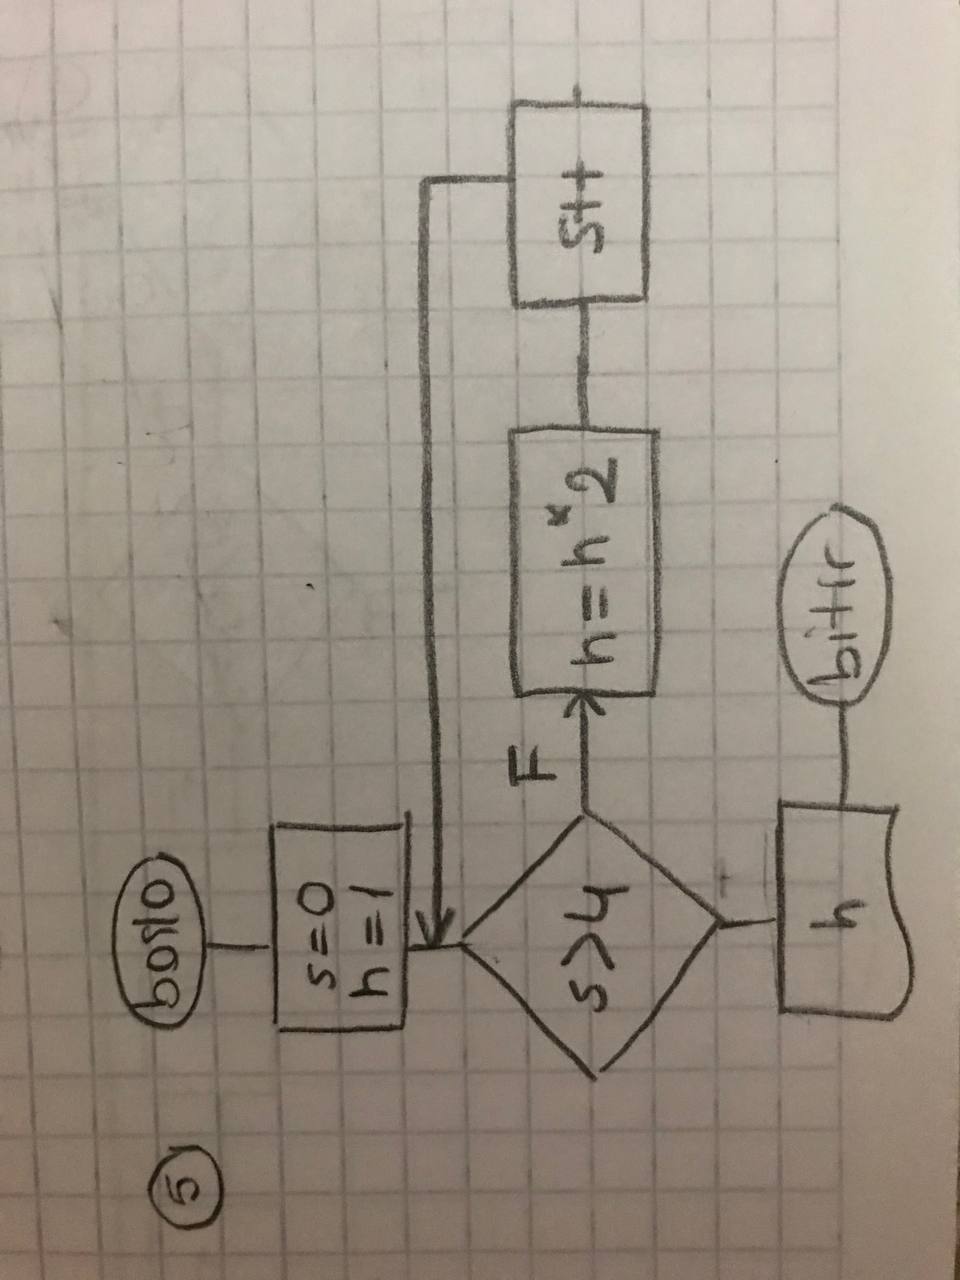 5
başla
s=0
h=1
s>4
F
h=h*2
s++
h
bitir